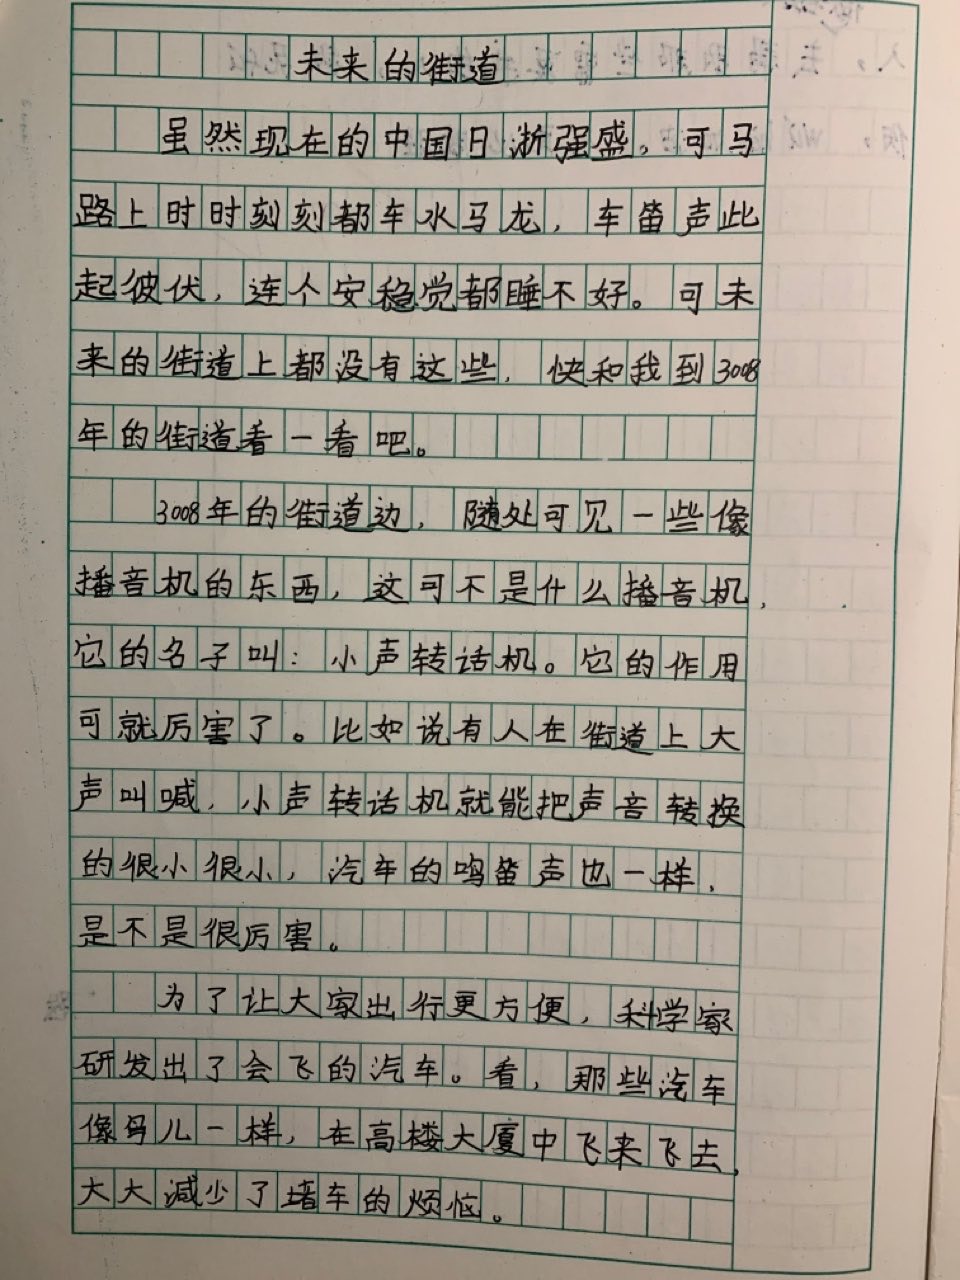 未来的街道
虽然现在的中国日渐强盛。可马
路上时时刻刻都车水马龙，车笛声此
起彼伏，连个安稳觉都睡不好。可未
来的街道上都没有这些，快和我到3008
年的街道看一看吧。
3008年的街道边，随处可见一些像
播音机的东西，这可不是什么播音机，
它的名子叫：小声转话机。它的作用
可就厉害了。比如说有人在街道上大
声叫喊，小声转话机就能把声音转换
的很小很小，汽车的鸣笛声也一样，
是不是很厉害。
为了让大家出行更方便，科学家
研发出了会飞的汽车。看，那些汽车
像鸟儿一样，在高楼大厦中飞来飞去，
大大减少了堵车的烦恼。